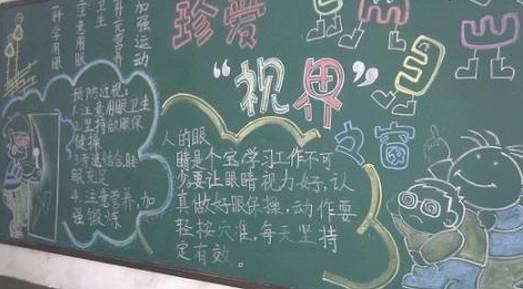 科学用眼
注意用眼
卫生
补充营养
加强运动
珍爱
“视界”
之窗
预防近视:
1.注意用眼卫生
2.坚持做眼保
健操
眼充足
4.注意营养,加
强锻炼
人的眼
睛是个宝学习工作不可
少要让眼睛视力好,认
真做好眼保操,动作要
轻按穴准,每天坚持
定有效。